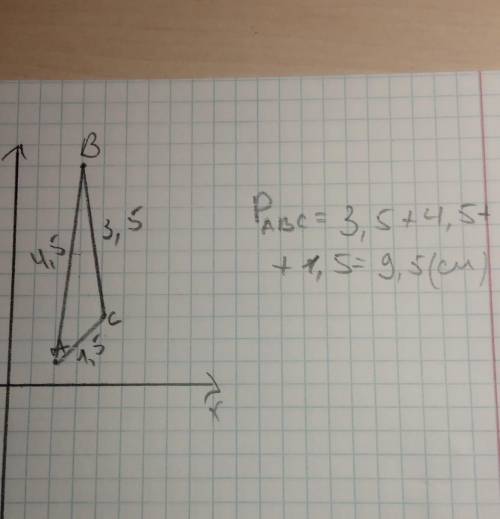 B
3,5
4,5
C
A
1,5
x
P_ABC = 3,5 + 4,5 +
+ 1,5 = 9,5 (см)